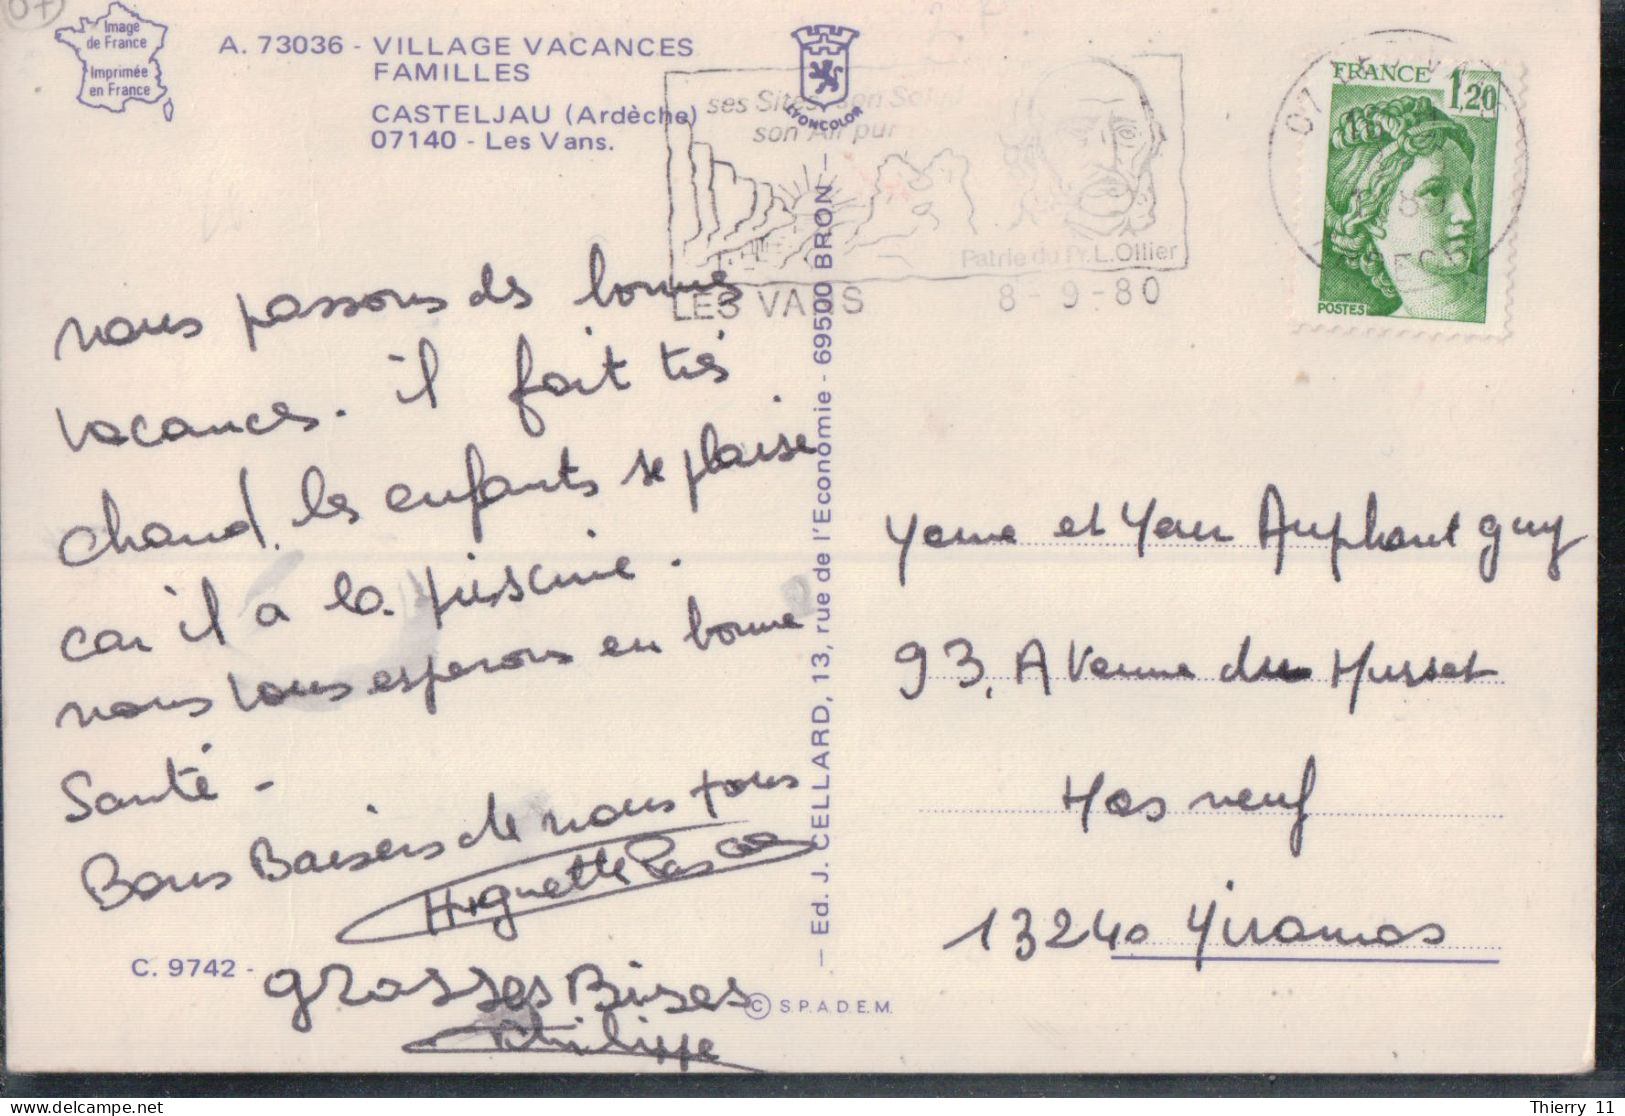 07
Image
de France
Imprimée
en France
A. 73036 - VILLAGE VACANCES
FAMILLES
CASTELJAU (Ardèche)
07140 - Les Vans.
LYONCOLOR
ses Sites, son Soleil
son Air pur
Patrie du Pr. L. Ollier
LES VANS
8-9-80
FRANCE
1,20
POSTES
nous passons des bonnes
vacances. il fait très
chaud. les enfants se plaise
car il a la piscine.
nous vous esperons en bonne
Santé -
Bons Baisers de nous tous
Huguette Pascal
grosses Bises
Philippe
C. 9742 -
— Ed. J. CELLARD, 13, rue de l'Economie - 69500 BRON —
© S.P.A.D.E.M.
et guy
93, Avenue du Musset
Mas neuf
13240
Thierry 11